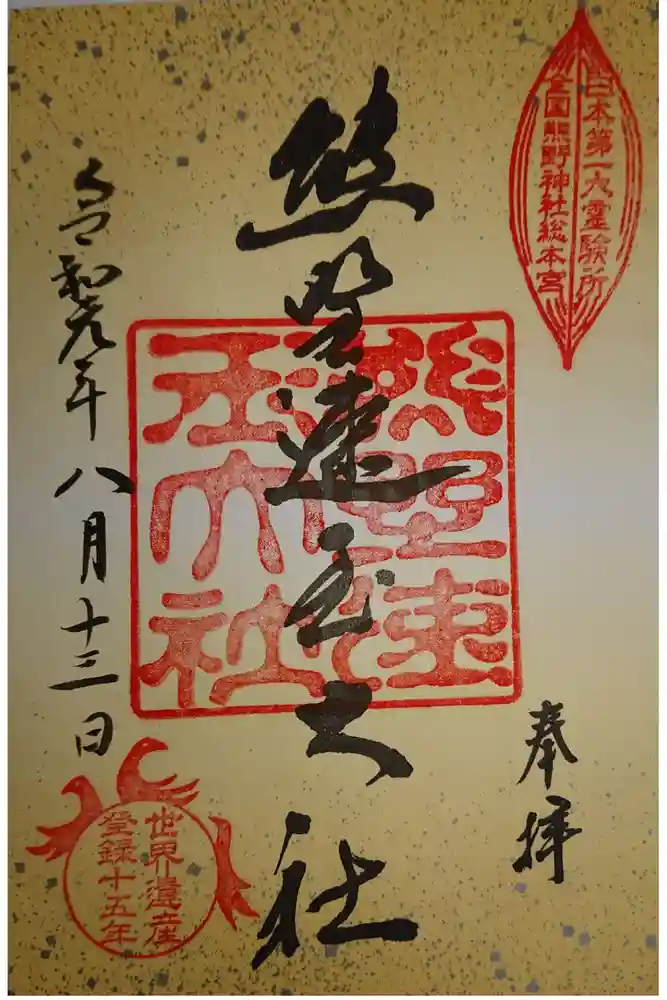 日本第一大霊験所
全国熊野神社総本宮
奉拝
熊野速玉大社
令和元年八月十三日
世界遺産
登録十五年